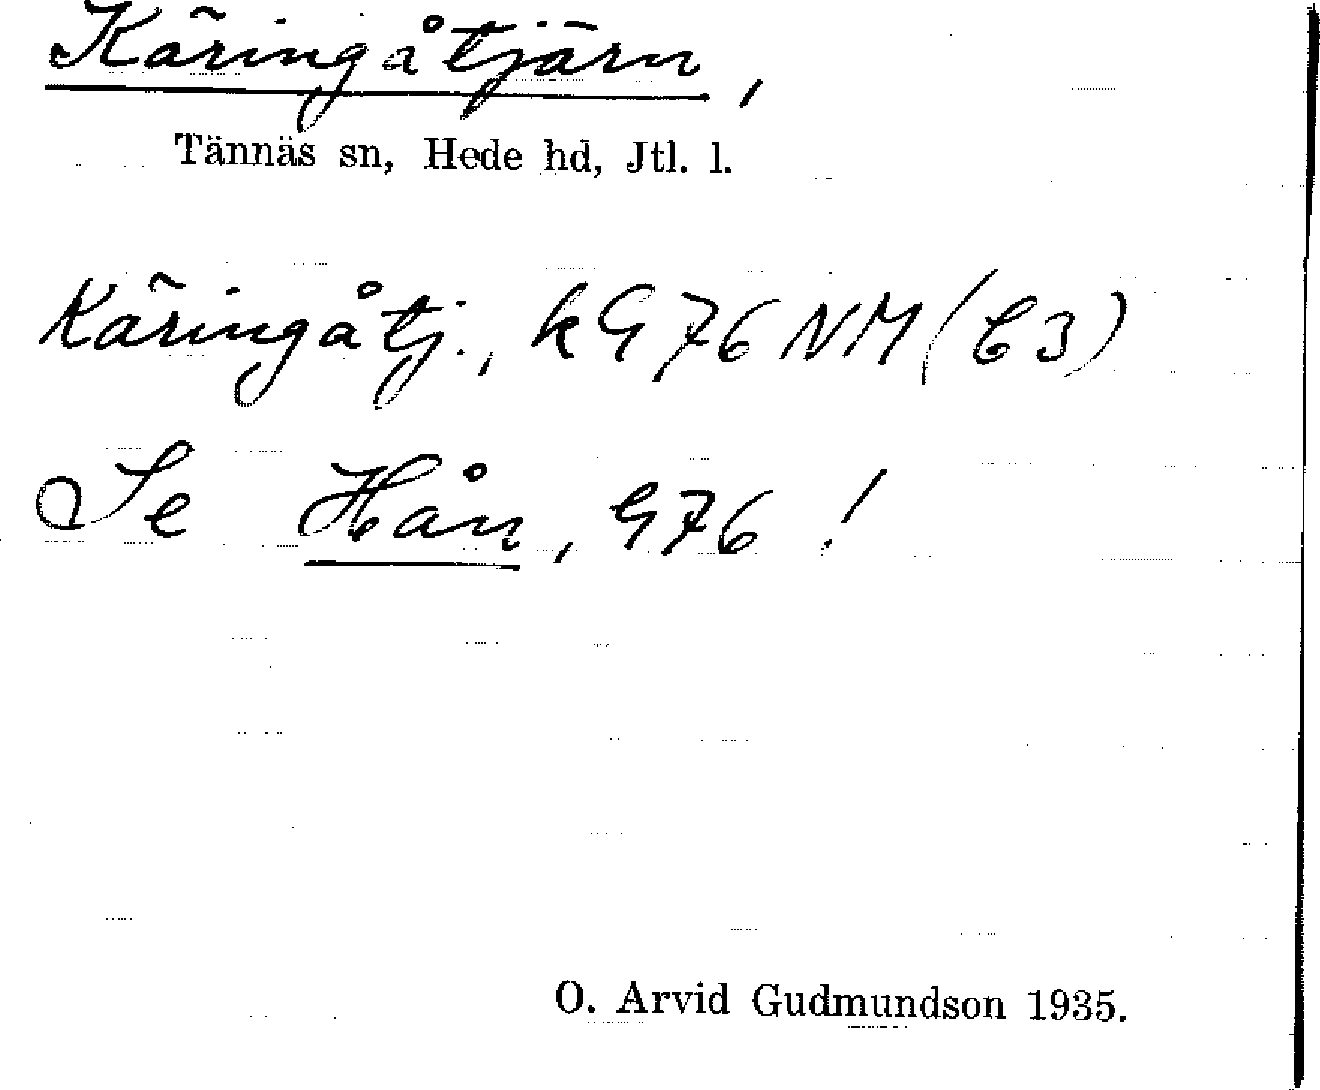 Käringåtjärn,
Tännäs sn, Hede hd, Jtl. l.
Käringåtj., k G76 NM (C3)
Se Hån, G76!
O. Arvid Gudmundson 1935.